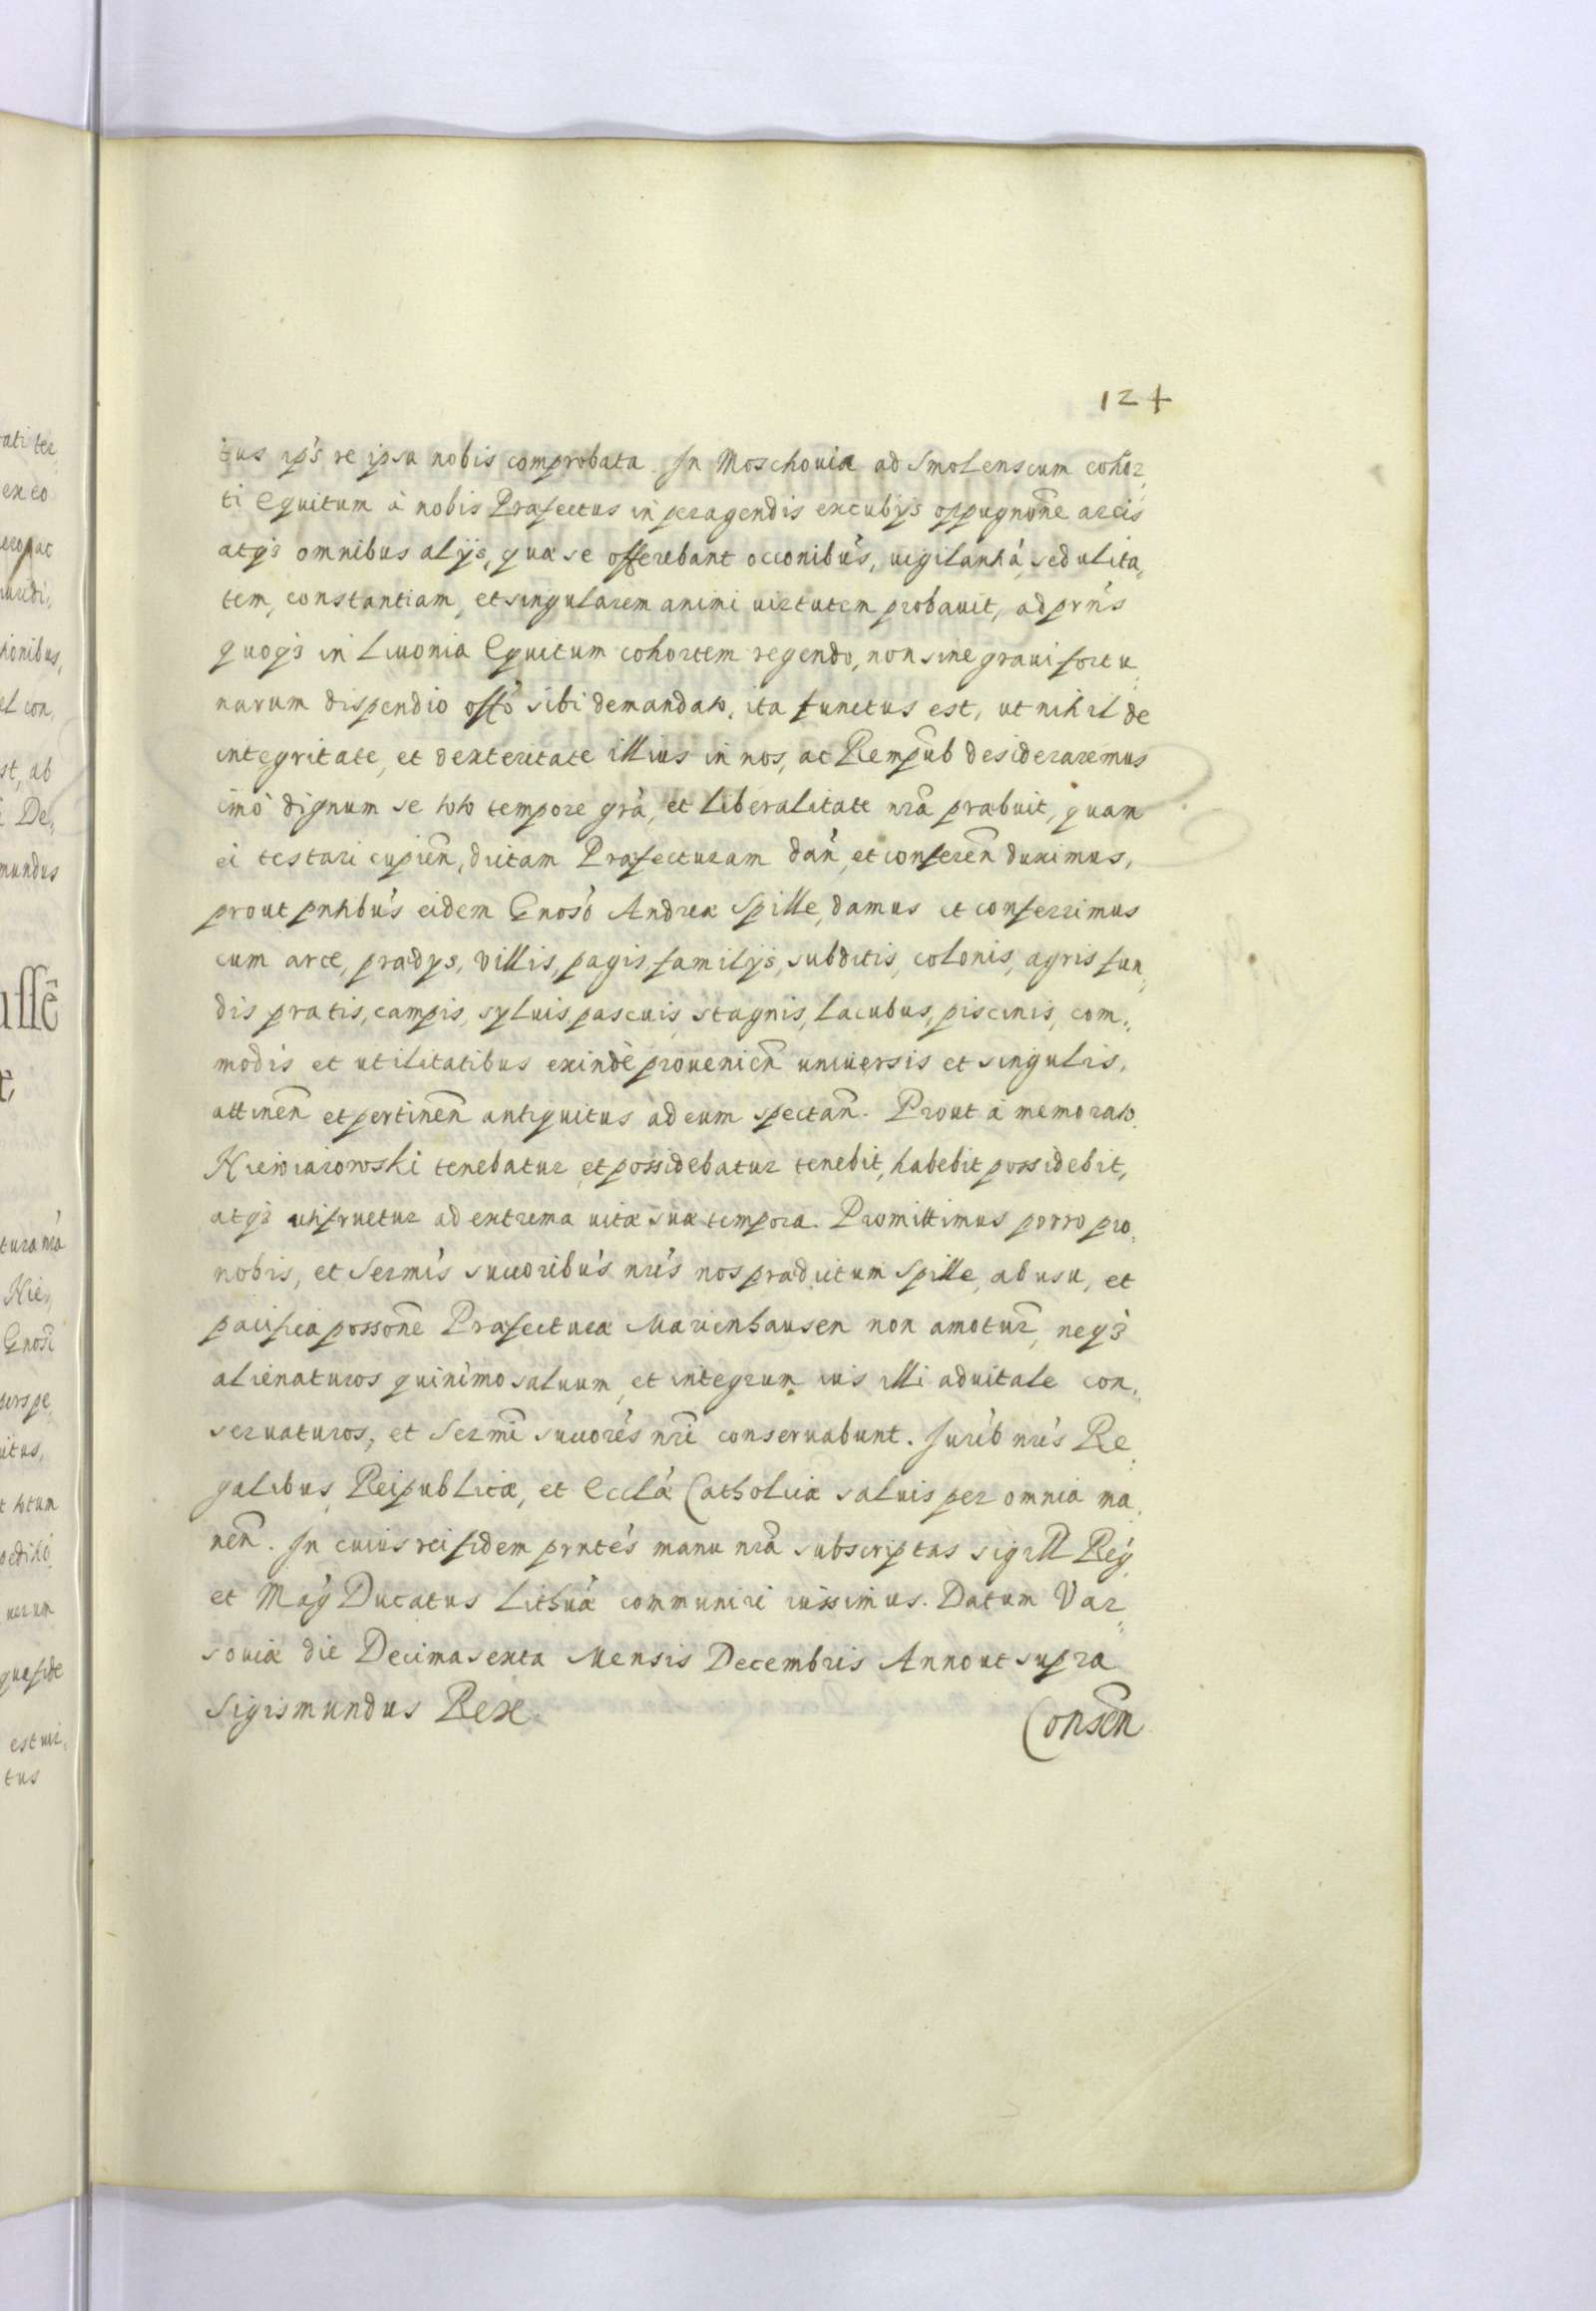 124
tus ips re ipsa nobis comprobata. In Moschouia ad Smolenscum cohor„
ti Equitum à nobis Præfectus in peragendis excubijs oppugnōne arcis
atqз omnibus alijs, quæ se offerebant occonibus, uigilantiá, sedulita„
tem, constantiam, et singularem animi uirtutem probauit, ad prns
quoqз in Liuonia Equitum cohortem regendo, non sine graui fortu„
narum dispendio offo sibi demandato, ita functus est, ut nihil de
integritate, et dexteritate illius in nos, ac Rempub desideraremus
imò dignum se toto tempore grà, et liberalitate nrā præbuit, quam
ei testari cupien̄, dictam Præfecturam dan̄, et conferen̄ duximus,
prout pntibus eidem Gnoso Andreæ Spille, damus et conferrimus
cum arce, prædys, villis, pagis, familijs, subditis, colonis, agris fun„
dis pratis, campis, syluis, pascuis, stagnis, lacubus, piscinis, com„
modis et utilitatibus exindè prouenien̄ uniuersis et singulis,
attinen̄ et pertinen̄ antiquitus ad eum spectan̄. Prout à memorato
Niewiarowski tenebatur et possidebatur tenebit, habebit possidebit,
atqз utifruetur ad extrema uitæ suæ tempora. Promittimus porro pro„
nobis, et Sermis succoribus nris nos prædictum Spille, ab usu, et
pacifica possone Præfecturæ Marienhausen non amotur̄, neqз
alienaturos quinimo saluum, et integrum ius illi aduitale con„
seruaturos, et Sermi succores nri conseruabunt. Jurib nris Re„
galibus Reipublicæ, et Ecclæ Catholicæ saluis per omnia ma„
nen̄. In cuius rei fidem prntes manu nrā subscriptas sigill Reg
et Mag Ducatus Lithuæ communiri iussimus. Datum Var„
souiæ die Decimasexta Mensis Decembris Anno ut supra
Sigismundus Rex.
Consen̄